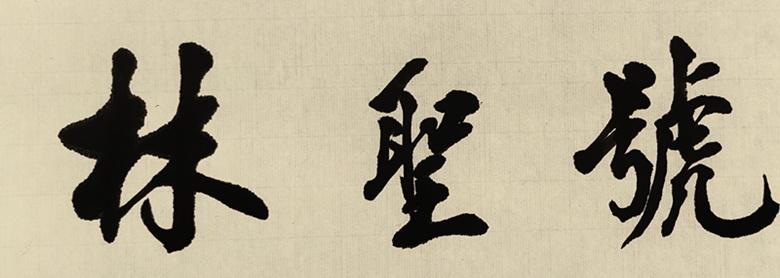 號聖林